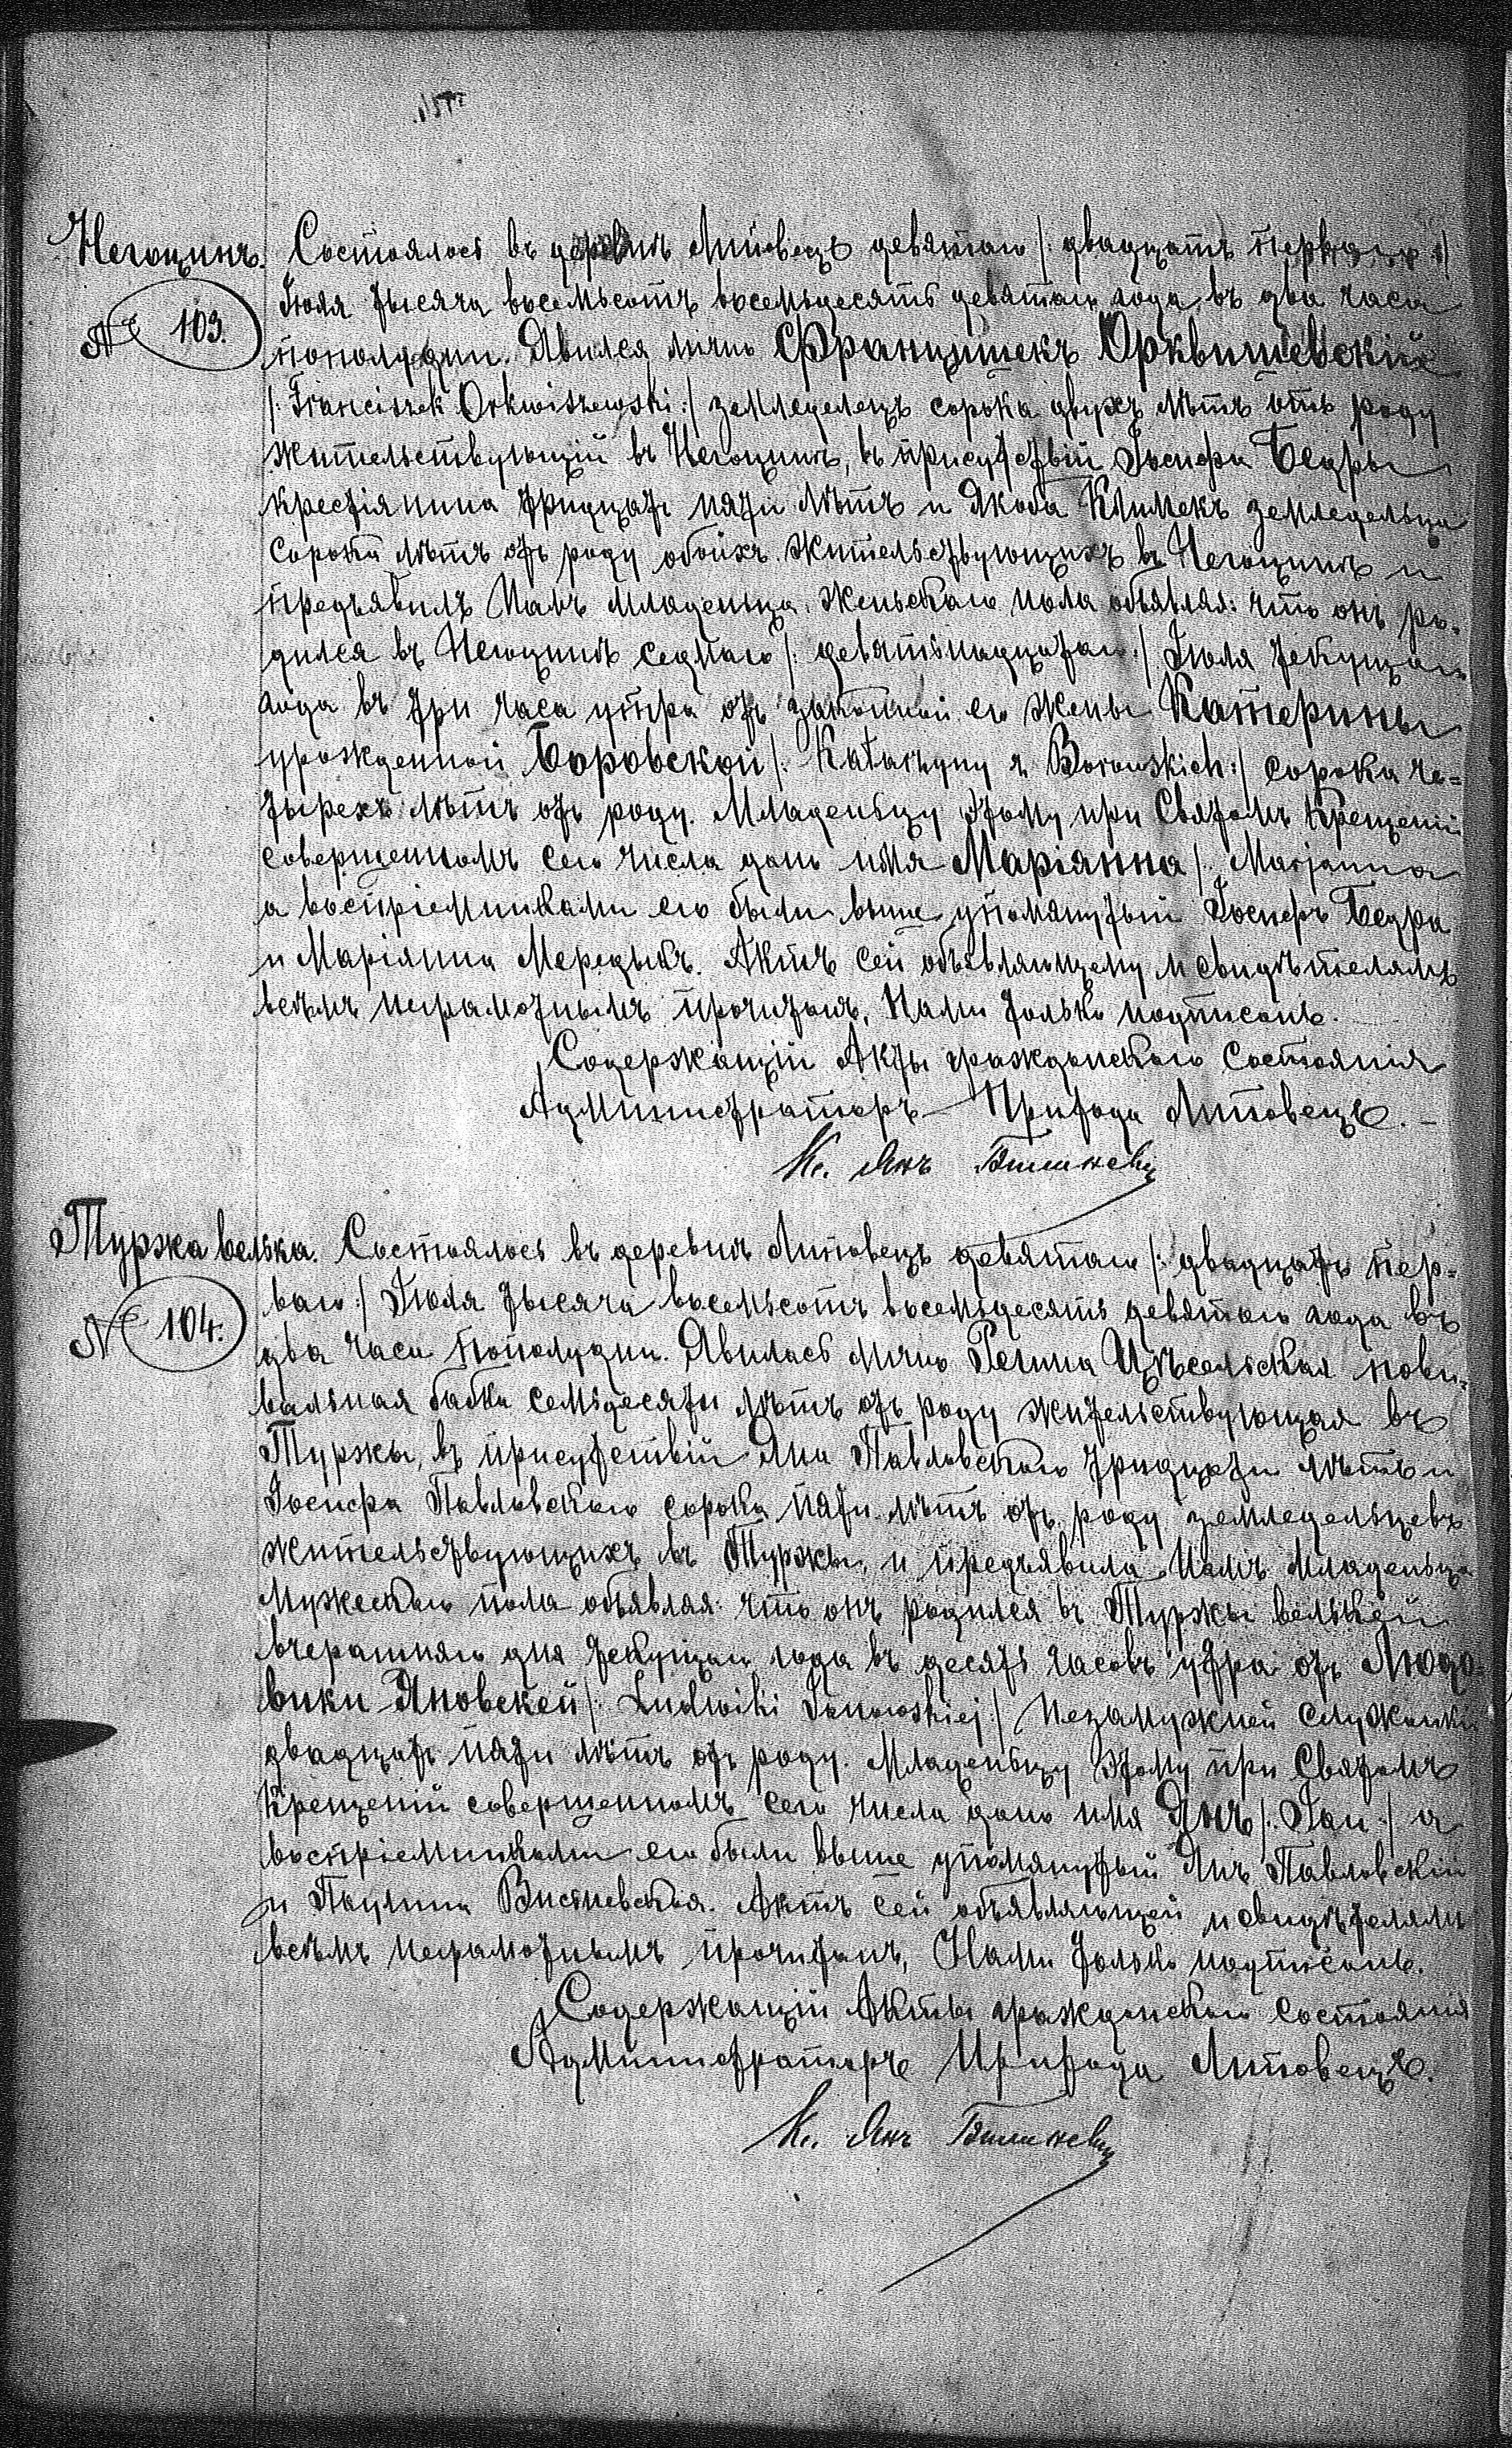 Негоцинъ. Состоялось въ деревнѣ Литовецъ девятаго /: двадцать перваго :/
№ 103. Іюля тысяча восемьсотъ восемьдесятъ девятаго года въ два часа
пополудни. Явился лично Францишекъ Орквишевскій
/: Franciszek Orkwiszewski :/ земледелецъ сорока двухъ лѣтъ отъ роду
жительствующій въ Негоцинѣ, въ присутствіи Іосифа Бедры
крестіянина тридцати пяти лѣтъ и Якоба Климекъ земледельца
сорока лѣтъ отъ роду обоихъ жительствующихъ въ Негоцинѣ и
предъявилъ Намъ младенца женьскаго пола объявляя: что онъ ро-
дился въ Негоцинѣ седмаго /: девятьнадцатаго :/ Іюля текущаго
года въ три часа утра отъ законной его жены Катерины
урожденной Боровской /: Katarzyny z Borowskich :/ сорока че=
тырехъ лѣтъ отъ роду. Младенцу этому при Святомъ Крещеніи
совершенномъ сего числа дано имя Маріянна /: Marjanna
а воспріемниками его были выше упомянутый Іосифъ Бедра
и Маріянна Мередыкъ. Актъ сей объявляющему и свидѣтелямъ
всѣмъ неграмотнымъ прочитанъ, Нами только подписанъ.
Содержащій Акты гражданскаго состоянія
Администраторъ Прихода Литовецъ.
Кс. Янъ
Туржа велька. Состоялось въ деревнѣ Литовецъ девятаго /: двадцать пер=
№ 104. ваго :/ Іюля тысяча восемьсотъ восемьдесятъ девятаго года въ
два часа пополудни. Явилась лично Регина Цѣсельская пови=
вальная бабка семьдесяти лѣтъ отъ роду жительствующая въ
Туржы, въ присутствіи Яна Павловскаго тридцати лѣтъ и
Іосифа Павловскаго сорока пяти лѣтъ отъ роду земледельцевъ
жительствующихъ въ Туржы, и предъявила Намъ младенца
мужескаго пола объявляя: что онъ родился въ Туржы велькей
вчерашняго дня текущаго года въ десять часовъ утра отъ Людо-
вики Яновскей /: Ludwiki Janowskiej :/ незамужней служанки
двадцати пяти лѣтъ отъ роду. Младенцу этому при Святомъ
Крещеніи совершенномъ сего числа дано имя Янъ /: Jan :/ а
воспріемниками его были выше упомянутый Янъ Павловскій
и Паулина Висневская. Актъ сей объявляющей и свидѣтелямъ
всѣмъ неграмотнымъ прочитанъ, Нами только подписанъ.
Содержащій Акты гражданскаго состоянія
Администраторъ Прихода Литовецъ.
Кс. Янъ